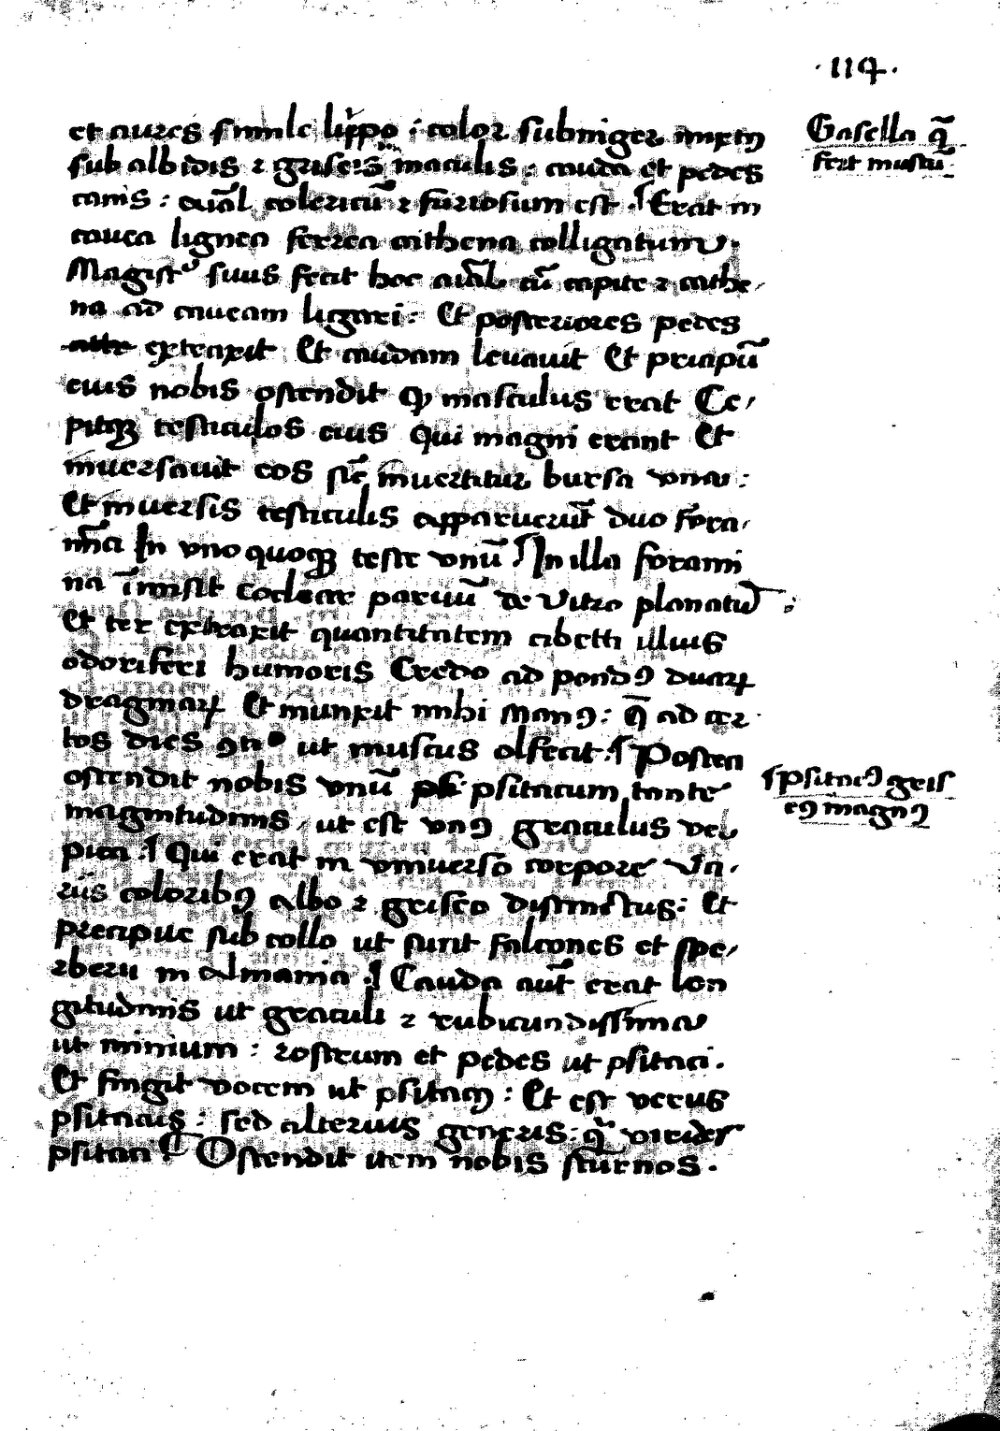 ·114·
Gasella q̃
fert muscũ
et aures simile lippo : color subniger mixtꝰ
sub albidis ⁊ griseis maculis : cauda et pedes
canis : aĩal colericũ ⁊ furiosum est ·¶ Erat in
cauea lignea ferrea cathena colligatum·
Magistʳ suus fecit hoc aĩal cũ capite ⁊ cathe⸗
na ad caueam ligari : Et posteriores pedes
extraxit Et caudam leuauit Et priapũ
eius nobis ostendit ꝙ masculus erat Ce⸗
pitqꝫ testiculos eius qui magni erant Et
inuersauit eos sic̃ inuertitur bursa vna :
Et inuersis testiculis apparuerũt duo fora⸗
mĩa In vno quoqꝫ teste vnũ ¶ In illa forami
na ĩmisit cocleare paruũ de vitro planatũ :
Et ter extraxit quantitatem cibetti illius
odoriferi humoris Credo ad pondꝰ duaꝝ
dragmaꝝ Et inunxit mihi manꝰ : q̃ ad cer
tos dies ꝯtiᵒ ut muscus olfecit ·¶ Postea
ostendit nobis vnũ psitacum tante
magnitudinis ut est vnꝰ graculus vel
pica ·¶ Qui erat in vniuerso corpore va⸗
riis coloribꝰ albo ⁊ griseo distinctus : Et
precipue sub collo ut sunt falcones et spe⸗
rberii in almania ·¶ Cauda aũt erat lon
gitudinis ut graculi ⁊ rubicundissima
ut minium : rostrum et pedes ut psitaci ·
Et fingit vocem ut psitacꝰ : Et est verus
psitacus : sed alterius generis : q̃ virides
psitaci ¶ Ostendit item nobis sturnos ·
¶ psitacꝰ gris
eꝰ magnꝰ